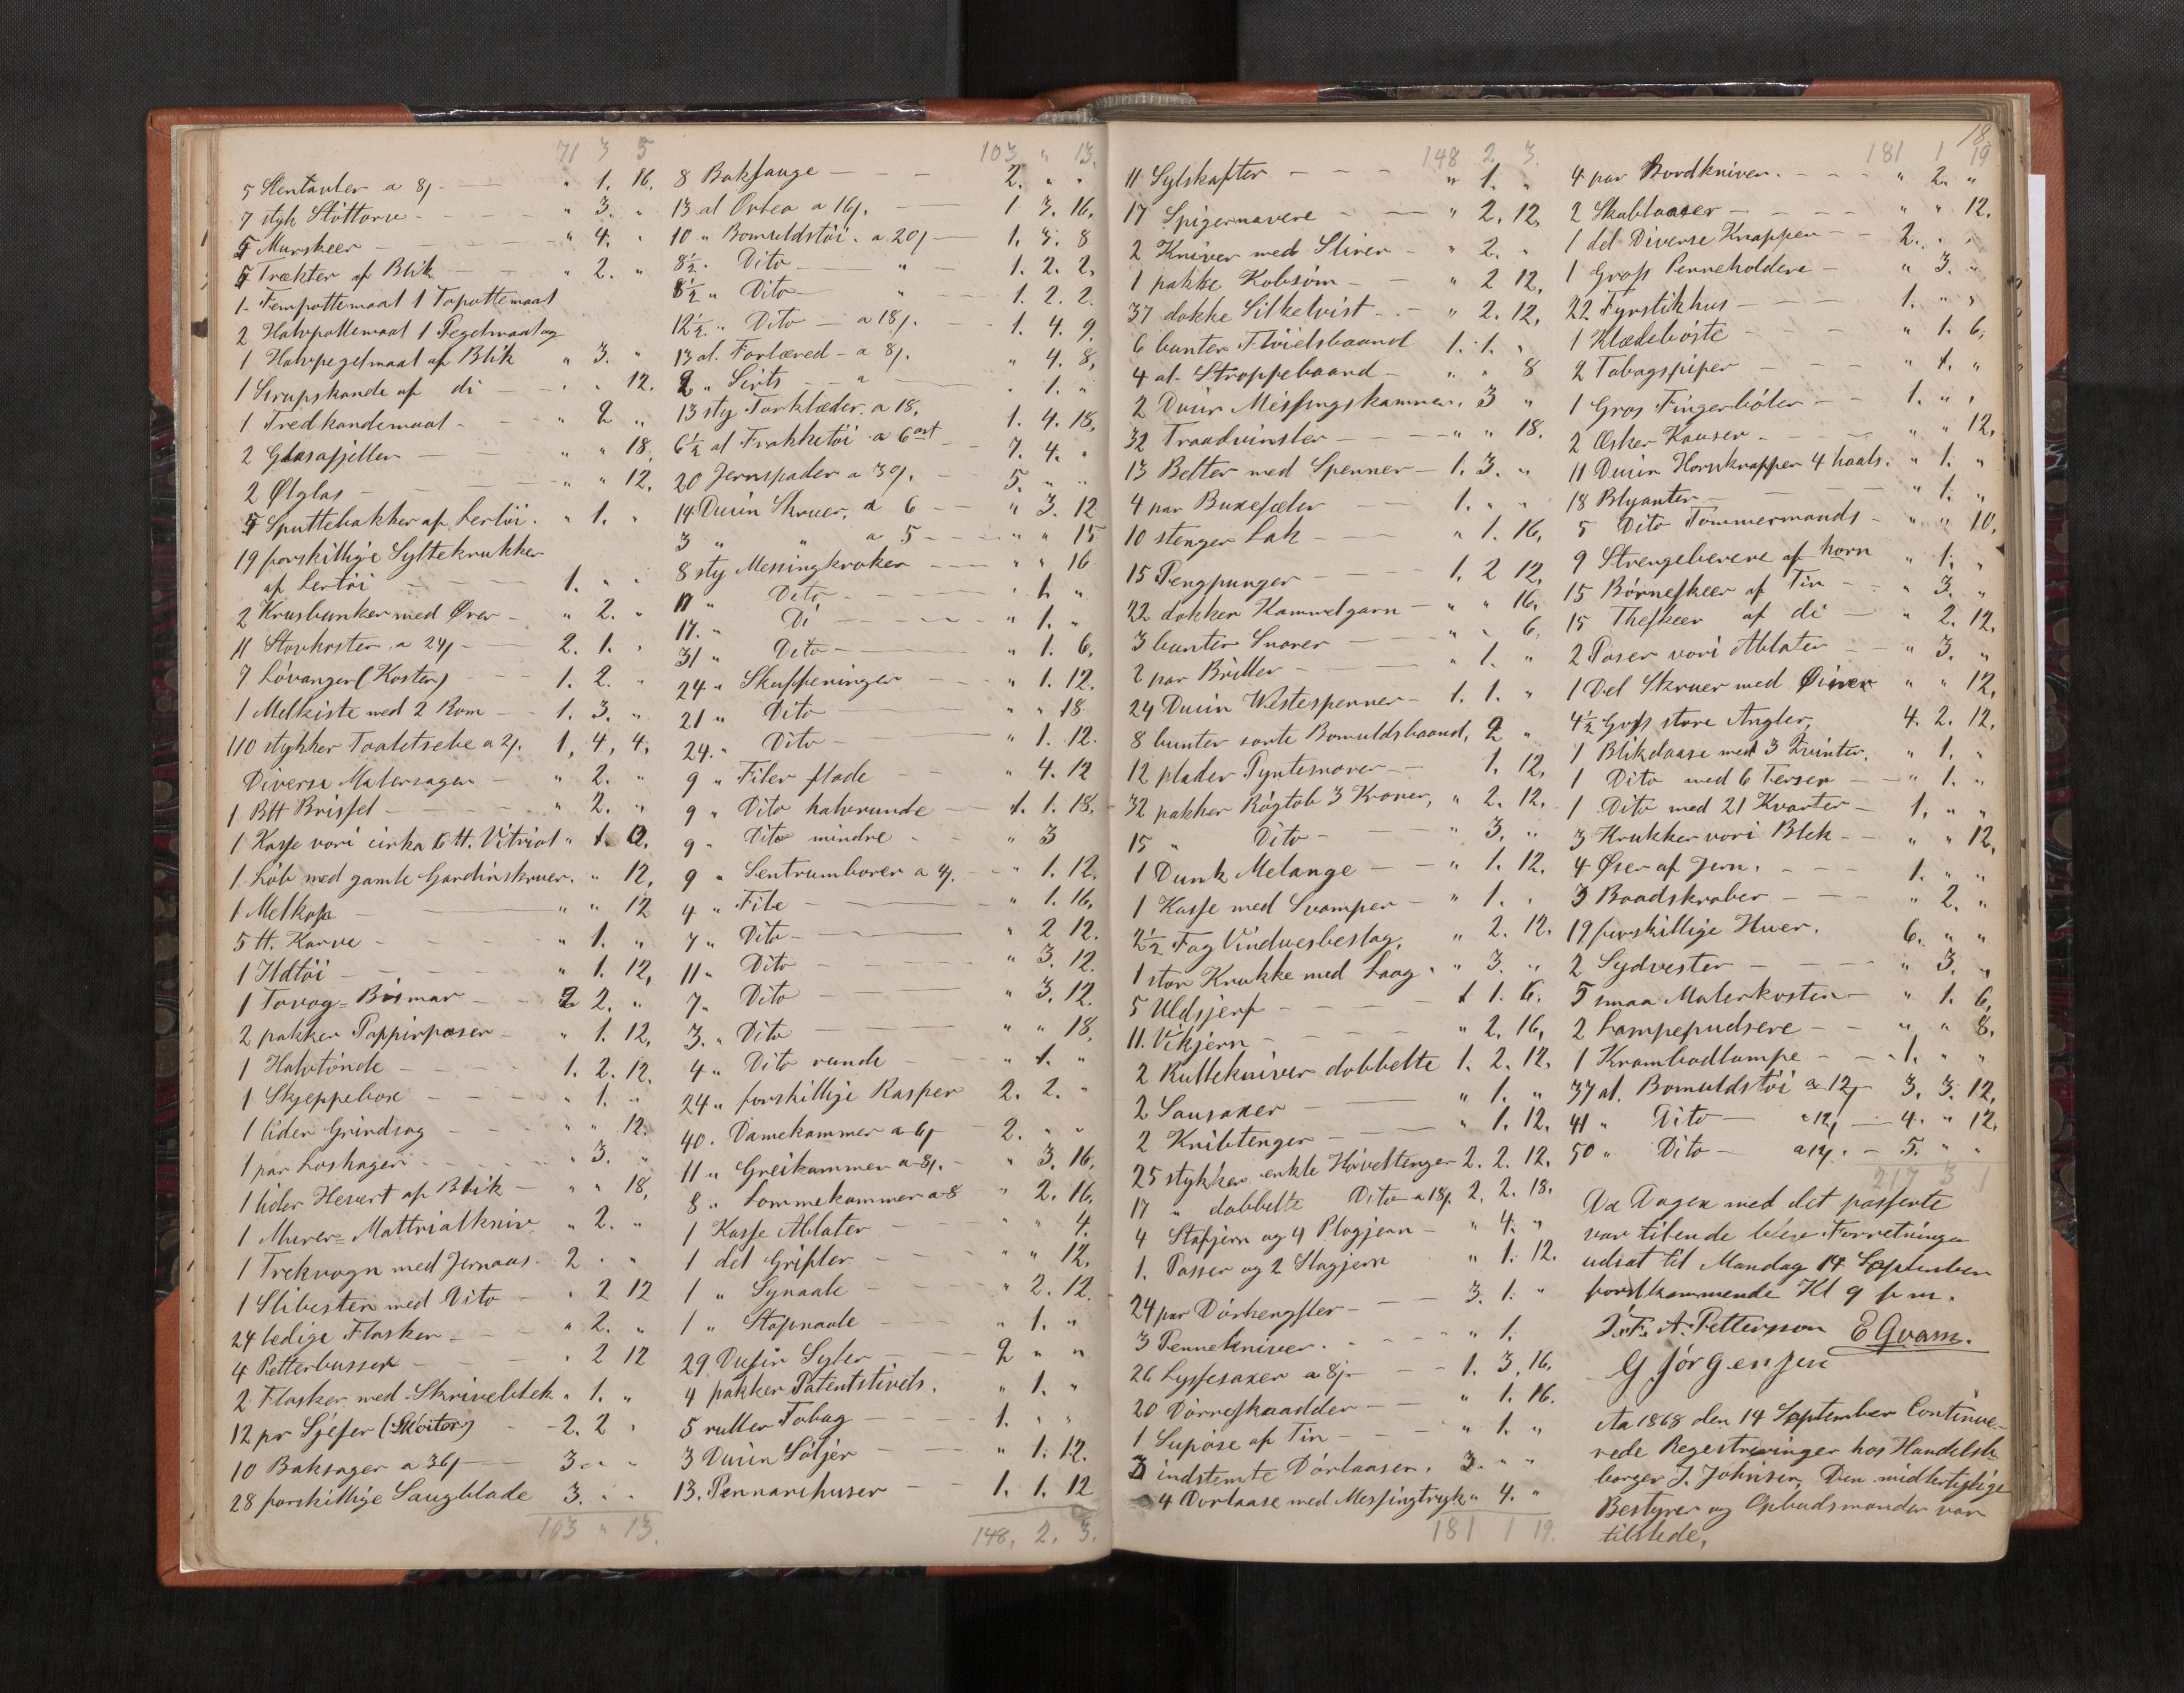 71 3 5
5 Stentavler a 8 — " 1. 16.
7 styk Stöttorv - " 3. "
5 Murskeer — " 4. "
5 Trækter af Blik — " 2. "
1. Fempottemaal 1 Topottemaal
2 Halvpottemaal 1 Pegelmaal og
1 Halvpegelmaal af Blik " 3. "
1 Sirupskande af di — " " 12.
1 Tredkandemaal - " 2 "
2 Glasafjeller — " " 18.
2 Ølglas — " " 12.
5 Sputtebakker af Lertöi. " 1. "
19 forskillige Syltekrukker
af Lertöi — 1. " "
2 Krusbunker med Ører - " 2. "
11 Stovkoster a 24 — 2. 1. "
7 Lövanger (Koster) — 1. 2. "
1 Melkiste med 2 Rom — 1. 3. "
110 stykker Taaletsebe a 2. 1, 4, 4,
Diverse Malersager — " 2. "
1 Btt Brissel — " 2. "
1 Kasse vori cirka 6 tt. Vitriol " 1. 0.
1. Lob med gamle Gardinskruer. " 12,
1 Melkass — " " 12
5 tt. Karve — " 1. "
1 Ildtöi — " 1. 12,
1 Tovog=Bismar — 2 2. "
2 pakker Pappirposer - " 1. 12,
1 Halvtönde — 1. 2. 12.
1 Skjeppebox — " 1. "
1 liden Grindsag — " " 12.
1 par Loshager — " 3. "
1 liden Hevert af Blik — " " 18,
1 Murer=Mattrialkniv " 2. "
1 Trekvogn med Jernaas. 2 " "
1 Slibesten med Dito — " 2 12
24 ledige Flasker — " 2. "
4 Petterbusser — " 2 12
2 Flasker med Skriveblek " 1. "
12 pr Sjefer (Skoiter) - 2. 2 "
10 Baksager a 36 — 3. " "
28 forskillige Saugblade 3. " "
103 " 13.
103 " 13.
8 Baksauge — 2. " "
13 al Orlea a 16. — 1 3. 16,
10 " Bomuldstöi. a 20 — 1. 3. 8
8½ " Dito — " 1. 2. 2,
8½ " Dito — " 1. 2. 2.
12½ " Dito — a 18. - 1. 4. 9.
13 al. Forlæred - a 8. " 4. 8,
2 " Sirts — " " 1. "
13 sty Torklæder. a 18. 1. 4. 18,
6½ al Frakketöi a 6 ort 7. 4. "
20 Jernspader a 30. - 5. " "
14 Dusin Skruer, a 6 — " 3. 12
3 " " a 5 — " " 15
8 sty Messingkroker — " " 16
11 " Dito — " 1. "
17. " Di — " 1. "
31 " Dito — " 1. 6,
24 " Skuffeninger — " 1. 12.
21 " Dito — " " 18
24. " Dito — " 1. 12.
9 " Filer flade — " 4. 12
9 " Dito halvrunde — 1. 1. 18,
9 " Dito mindre - " 3
9 " Sentrumborer a 4. " 1. 12.
4 " File — " 1. 16,
7 " Dito — " 2 12.
11 " Dito — " 3. 12.
7 " Dito — " 3. 12.
3. " Dito — " " 18,
4 " Dito runde — " 1. "
24 " forskillige Rasper 2. 2. "
40. Damekammer a 6 2. " "
11 " Greikammer a 8. - " 3. 16,
8 " Lommekammer a 8 " 2. 16,
1 Kasse Ablater — " " 4.
1 del Grifler — " " 12,
1 " Synaale — " 2. 12.
1 " Stopnaale — " 1. "
29 Dusin Syler — 2 " "
4 pakker Patentstivels. " 1. "
5 ruller Tobag — 1. " "
3 Dusin Söljer — " 1. 12.
13. Pennarehuser — 1. 1. 12
148, 2. 3.
148 2 3.
11 Sylskafter — " 1. "
17 Spigernavere — " 2. 12,
2 Kniver med Slirer - " 2. "
1 pakke Kobsöm — " 2 12,
37 dokke Silketvist - " 2. 12,
6 bunter Flöielsbaand 1. 1. "
4 al. Stroppebaand — " " 8
2 Dusin Messingskammer, 3 "
32 Traadvinsler — " " 18.
13 Belter med Spenner — 1. 3. "
4 par Buxeseler 1. " "
10 stenger Lak — " 1. 16,
15 Pengpunger — 1. 2 12,
22 dokker Kammelgarn — " " 16,
3 bunter Snorer — " " 6.
2 par Briller — " 1. "
24 Dusin Westespenner - 1. 1. "
8 bunter sorte Bomuldsbaand, 2 "
12 plader Pyntesnorer — 1. 12,
32 pakker Rögtob 3 Kroner, " 2. 12,
15 " Dito — " 3. "
1 Dunk Melange — " 1. 12.
1 Kasse med Svamper — " 1. "
2½ Fag Vinduesbeslag, " 2. 12.
1 stor Krukke med Laag. " 3. "
5 Uldsjerf — 1 1. 6.
11. Vikjern — " 2. 16,
2 Rullekniver dobbelte 1. 2. 12.
2 Sausaxer — " 1. "
2 Knibtenger — " 1. 12,
25 stykker enkle Höveltenger 2. 2. 12.
17 " dobbelte Dito a 18. 2. 2. 18.
4 Stafjern og 4 Plogjern — " 4. "
1. Passer og 2 Slagjern " 1. 12.
24 par Dörhengsler — 3. 1. "
3 Pennekniver. — " 1.
26 Lyssesaxer a 8 — 1. 3. 16,
20 Dörreskaadder — " 1. 16.
1 Supöse af Tin — " 1. "
3 indstemte Dörlaaser. 3. " "
4 Dorlaase med Messingtryk " 4. "
181 1 19.
18.
181 1 19
4 par Bordkniver. — " 2. "
2 Skablaaser — " " 12.
1 del Diverse Knapper — 2. " "
1 Gross Penneholdere — " 3. "
22 Fyrstikhus — 1. " "
1 Klædebörste — " 1. 6,
2 Tobagspiper — " 1. "
1 Gros Fingerböler — 1. " "
2 Æsker Kauser — " " 12,
11 Dusin Hornknapper 4 haals. " 1. "
18 Blyanter — " 1. "
5 Dito Tommermands - " " 10,
9 Strengeberere af horn " 1. "
15 Börneskeer af Tin - " 3. "
15 Theskeer af di — " 2. 12,
2 Poser vori Ablater — " 3. "
1 Del Skruer med Öiner " " 12,
4½ Gross store Angler, 4. 2. 12,
1 Blikdaase med 3 Kvinter, " 1. "
1 Dito med 6 Terser — " 1. "
1 Dito med 21 Kvarter - 1. " "
3 Krukker vori Blek — " " 12,
4 Øser af Jern. — 1. " "
3 Baadskraber — " 2. "
19 forskillige Huer. 6. " "
2 Sydvester — " 3. "
5 smaa Malerkoster — " 1. 6,
2 Lampepudsere — " " 8.
1 Krambodlampe — 1. " "
37 al. Bomuldstöi a 12 3. 3. 12,
41 " Dito — a 12 — 4. " 12,
50 " Dito — a 12. - 5. " "
217 3 1
Da Dagen med det passerte
var tilende blev Forretningen
udsat til Mandag 14 September
førstkommende Kl 9 f m.
J. F. A. Petterson E Qvam.
G Jörgensen
Aa 1868 den 14 September Continue-
rede Regestreringer hos Handelsb
borger J. Johnsen, Den midlertiglige
Bestyrer og Opbudsmanden var
tilstede,